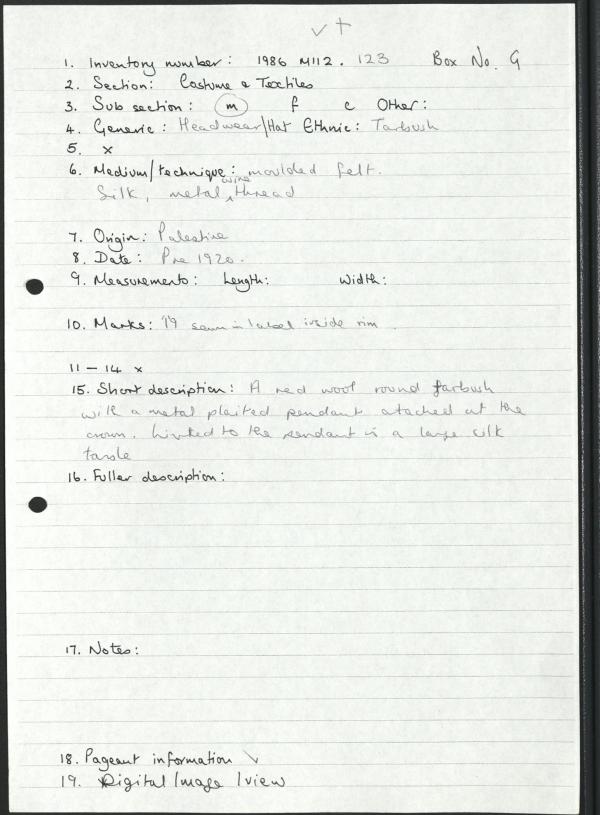 ✓ +
1. Inventory number: 1986 M112. 123 Box No. G
2. Section: Costume & Textiles
3. Sub section: m f c Other:
4. Generic: Headwear/Hat Ethnic: Tarbush
5. x
6. Medium/technique: moulded felt.
wire
Silk, metal thread
7. Origin: Palestine
8. Date: Pre 1920.
9. Measurements: Length: Width:
10. Marks: '19 sewn in label inside rim.
11 - 14 x
15. Short description: A red wool round tarbush
with a metal plaited pendant atached at the
crown. Linked to the pendant is a large silk
tassle
16. Fuller description:
17. Notes:
18. Pageant information
19. Digital Image 1 view